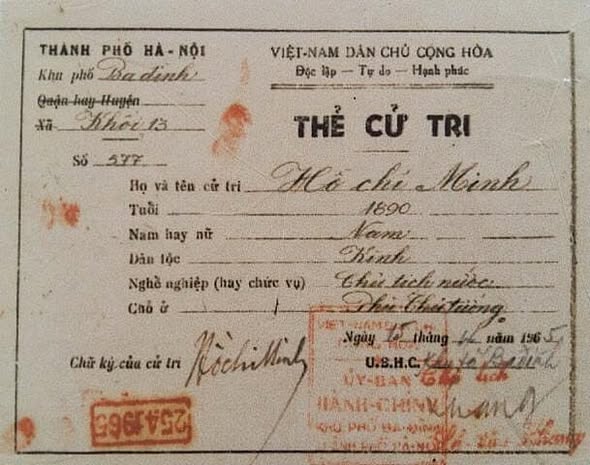 THÀNH PHỐ HÀ-NỘI
Khu phố Ba đình
Quận hay Huyện
Xã Khối 13
Số 577
VIỆT-NAM DÂN CHỦ CỘNG HÒA
Độc lập — Tự do — Hạnh phúc
THẺ CỬ TRI
Họ và tên cử tri Hồ chí Minh
Tuổi 1890
Nam hay nữ Nam
Dân tộc Kinh
Nghề nghiệp (hay chức vụ) Chủ tịch nước
Chỗ ở Phủ Chủ tướng
Ngày 15 tháng 4 năm 1965
Chữ ký của cử tri Hồ chí Minh
U.B.H.C. Khu phố Ba đình
VIỆT-NAM
ỦY-BAN
HÀNH-CHÍNH
KHU PHỐ BA-ĐÌNH
THÀNH PHỐ HÀ-NỘI
25.4.1965